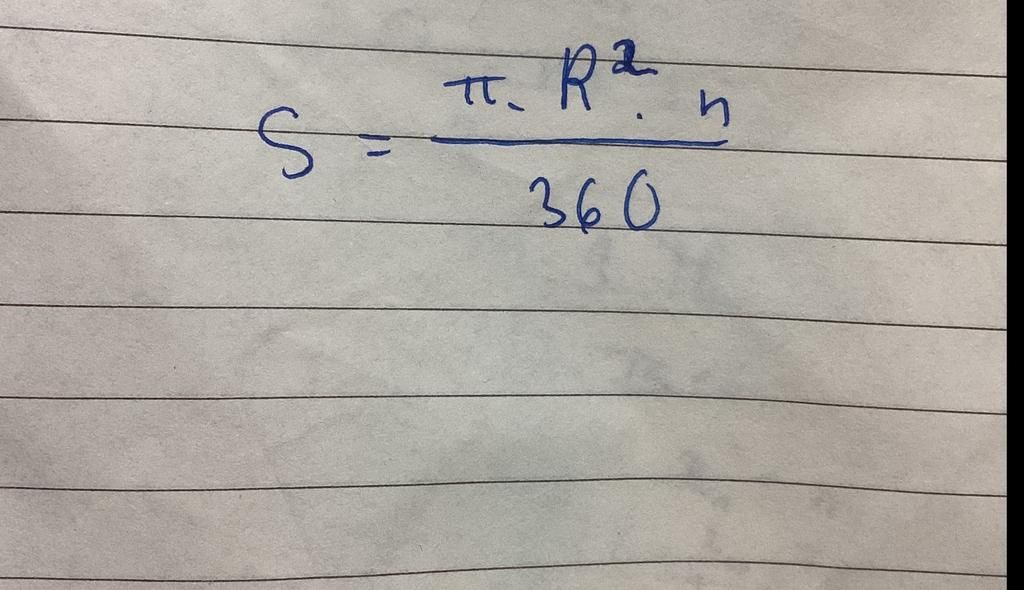 S = π . R² . n / 360